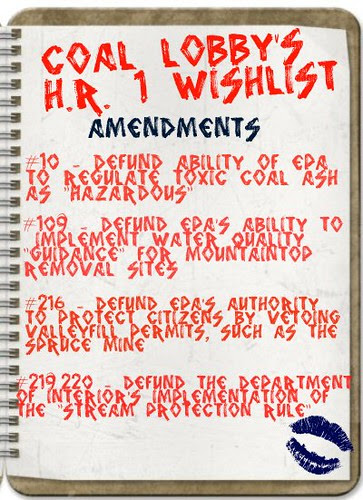 COAL LOBBY'S
H.R. 1 WISHLIST
AMENDMENTS
#10 - DEFUND ABILITY OF EPA
TO REGULATE TOXIC COAL ASH
AS "HAZARDOUS"
#109 - DEFUND EPA'S ABILITY TO
IMPLEMENT WATER QUALITY
"GUIDANCE" FOR MOUNTAINTOP
REMOVAL SITES
#216 - DEFUND EPA'S AUTHORITY
TO PROTECT CITIZENS BY VETOING
VALLEYFILL PERMITS, SUCH AS THE
SPRUCE MINE
#219,220 - DEFUND THE DEPARTMENT
OF INTERIOR'S IMPLEMENTATION OF
THE "STREAM PROTECTION RULE"